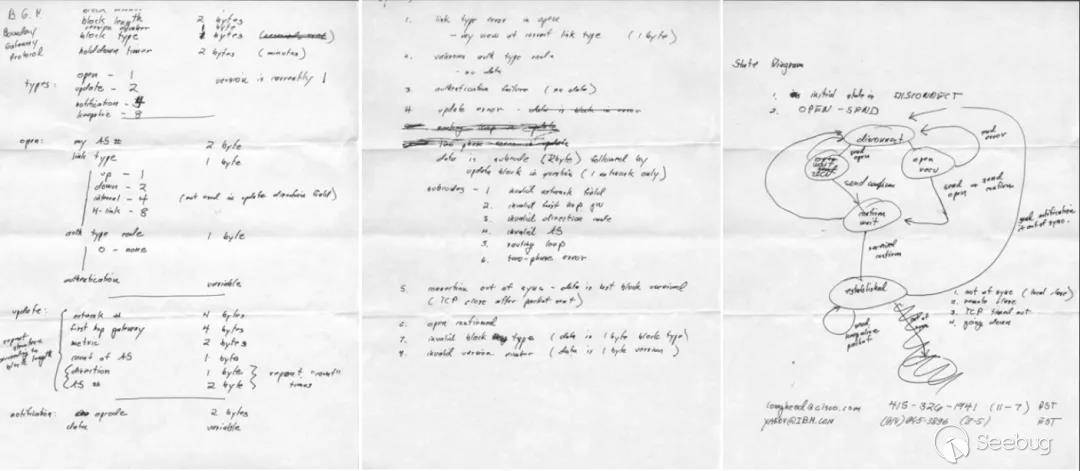 B.G.P.
Boundary
Gateway
Protocol
block length 2 bytes
version number 1 byte
block type bytes
holddown timer 2 bytes (minutes)
types: open - 1 version is currently 1
update - 2
notification -
keepalive - 8
open: my AS # 2 byte
link type 1 byte
up - 1
down - 2
internal - 4 (not used in update direction field)
H-link - 8
auth type code 1 byte
0 - none
authentication variable
update: network # 4 bytes
first hop gateway 4 bytes
metric 2 bytes
count of AS 1 byte
direction 1 byte
AS # 2 byte
repeat "count" times
repeat structure according to block length
notification: opcode 2 bytes
data variable
1. link type error in open
- my view of correct link type (1 byte)
2. unknown auth type code
- no data
3. authentication failure (no data)
4. update error - data is block in error
data is subcode (2 byte) followed by
update block in question (1 network only)
subcodes - 1 invalid network field
2. invalid first hop gw
3. invalid direction code
4. invalid AS
5. routing loop
6. two-phase error
5. connection out of sync - data is last block received
(TCP close after packet sent)
6. open confirmed
7. invalid block type (data is 1 byte block type)
8. invalid version number (data is 1 byte version)
State Diagram
1. initial state is DISCONNECT
2. OPEN - SEND
disconnect
send error
send open
open recv
send confirm
send or send
open confirm
confirm
wait
send notification
if out of sync.
received
confirm
established
1. out of sync (local close)
2. remote close
3. TCP timed out
4. going down
send
keepalive
packet
lougheed@cisco.com 415-326-1941 (11-7) PST
YAKOV@IBM.COM (8-5) EST
Seebug